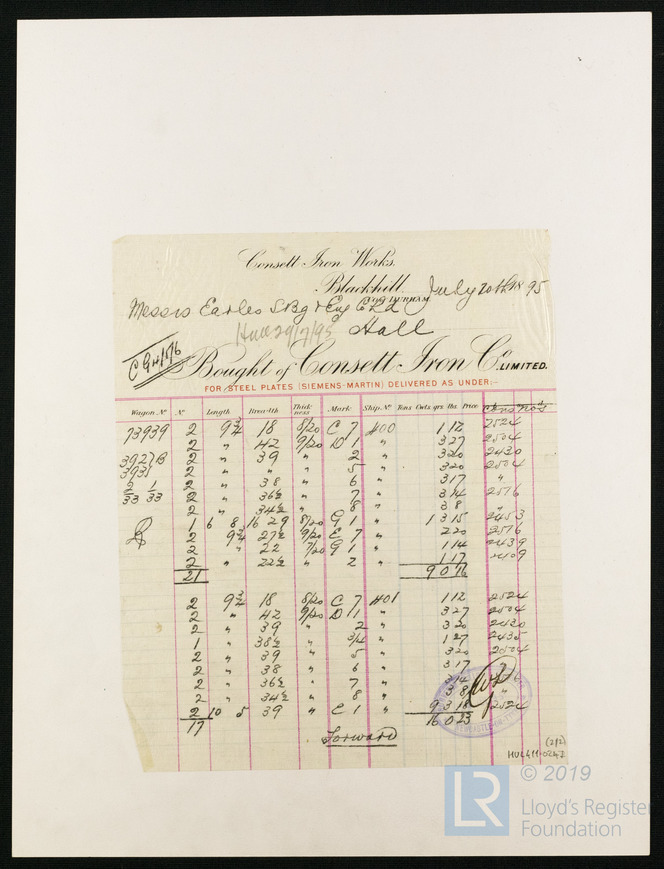 Consett Iron Works.
Blackhill,
CO. DURHAM
July 20th 1895
Messrs Earles SBg & Eng Co Ld
Hull 29/7/95 Hull
Bought of Consett Iron Co. LIMITED.
FOR STEEL PLATES (SIEMENS-MARTIN) DELIVERED AS UNDER:-
Wagon No No Length Breadth Thickness Mark Ship No Tons Cwts qrs lbs Price
73939 2 9¾ 18 8/20 C 7 400 1 12 2524
2 " 42 9/20 D 1 " 3 27 2504
39273 2 " 39 " 2 " 3 20 2430
3931 2 " " " 5 " 3 20 2504
2 " 38 " 6 " 3 17 "
33 33 2 " 36½ " 7 " 3 14 2576
2 " 34½ " 8 " 3 8 "
1 6 8 16 29 8/20 G 1 " 1 3 15 2453
2 9¾ 27½ 9/20 E 7 " 2 20 2576
2 " 22 7/20 G 1 " 1 14 2439
2 " 22½ " 2 " 1 17 2409
21 9 0
2 9¾ 18 8/20 C 7 401 1 12 2524
2 " 42 9/20 D 1 " 3 27 2504
2 " 39 " 2 " 3 20 2430
1 " 38½ " 3/4 " 1 27 2435
2 " 39 " 5 " 3 20 2504
2 " 38 " 6 " 3 17
2 " 36½ " 7 "
2 " 34½ " 8 " 3 8 "
2 10 5 39 " C 1 " 9 3 18 2524
17 16 0 23
Forward
(2/2)
HUL411-0242
© 2019
LR Lloyd's Register
Foundation